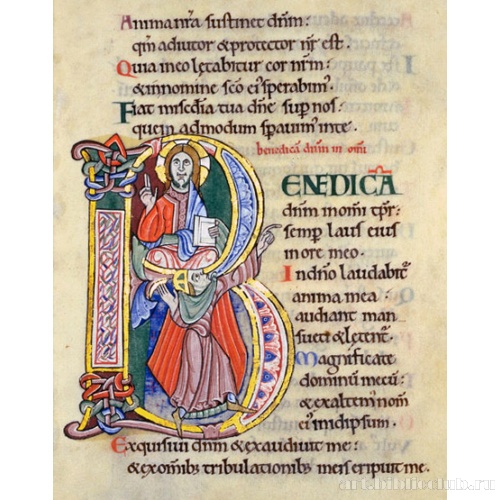 Anima nr̃a sustinet dñm:
qm̃ adiutor & protector nr̃ est.
Quia in eo lętabitur cor nr̃m:
& in nomine sc̃o ei᾽ sperabim᾽.
Fiat misc̃dia tua dñe sup̄ nos:
quem admodum sperauim᾽ in te.
benedicā dñm in om̃i
BENEDICĀ
dñm in om̃i tp̃r:
semp̄ laus eius
in ore meo.
In dño laudabit̃
anima mea:
audiant man
sueti & lętent̃.
Magnificate
dominū mecū:
& exaltem᾽ nom̃
ei᾽ in idipsum.
Exquisiui dñm & exaudiuit me:
& ex omĩb; tribulationib; meis eripuit me.
art.biblioclub.ru